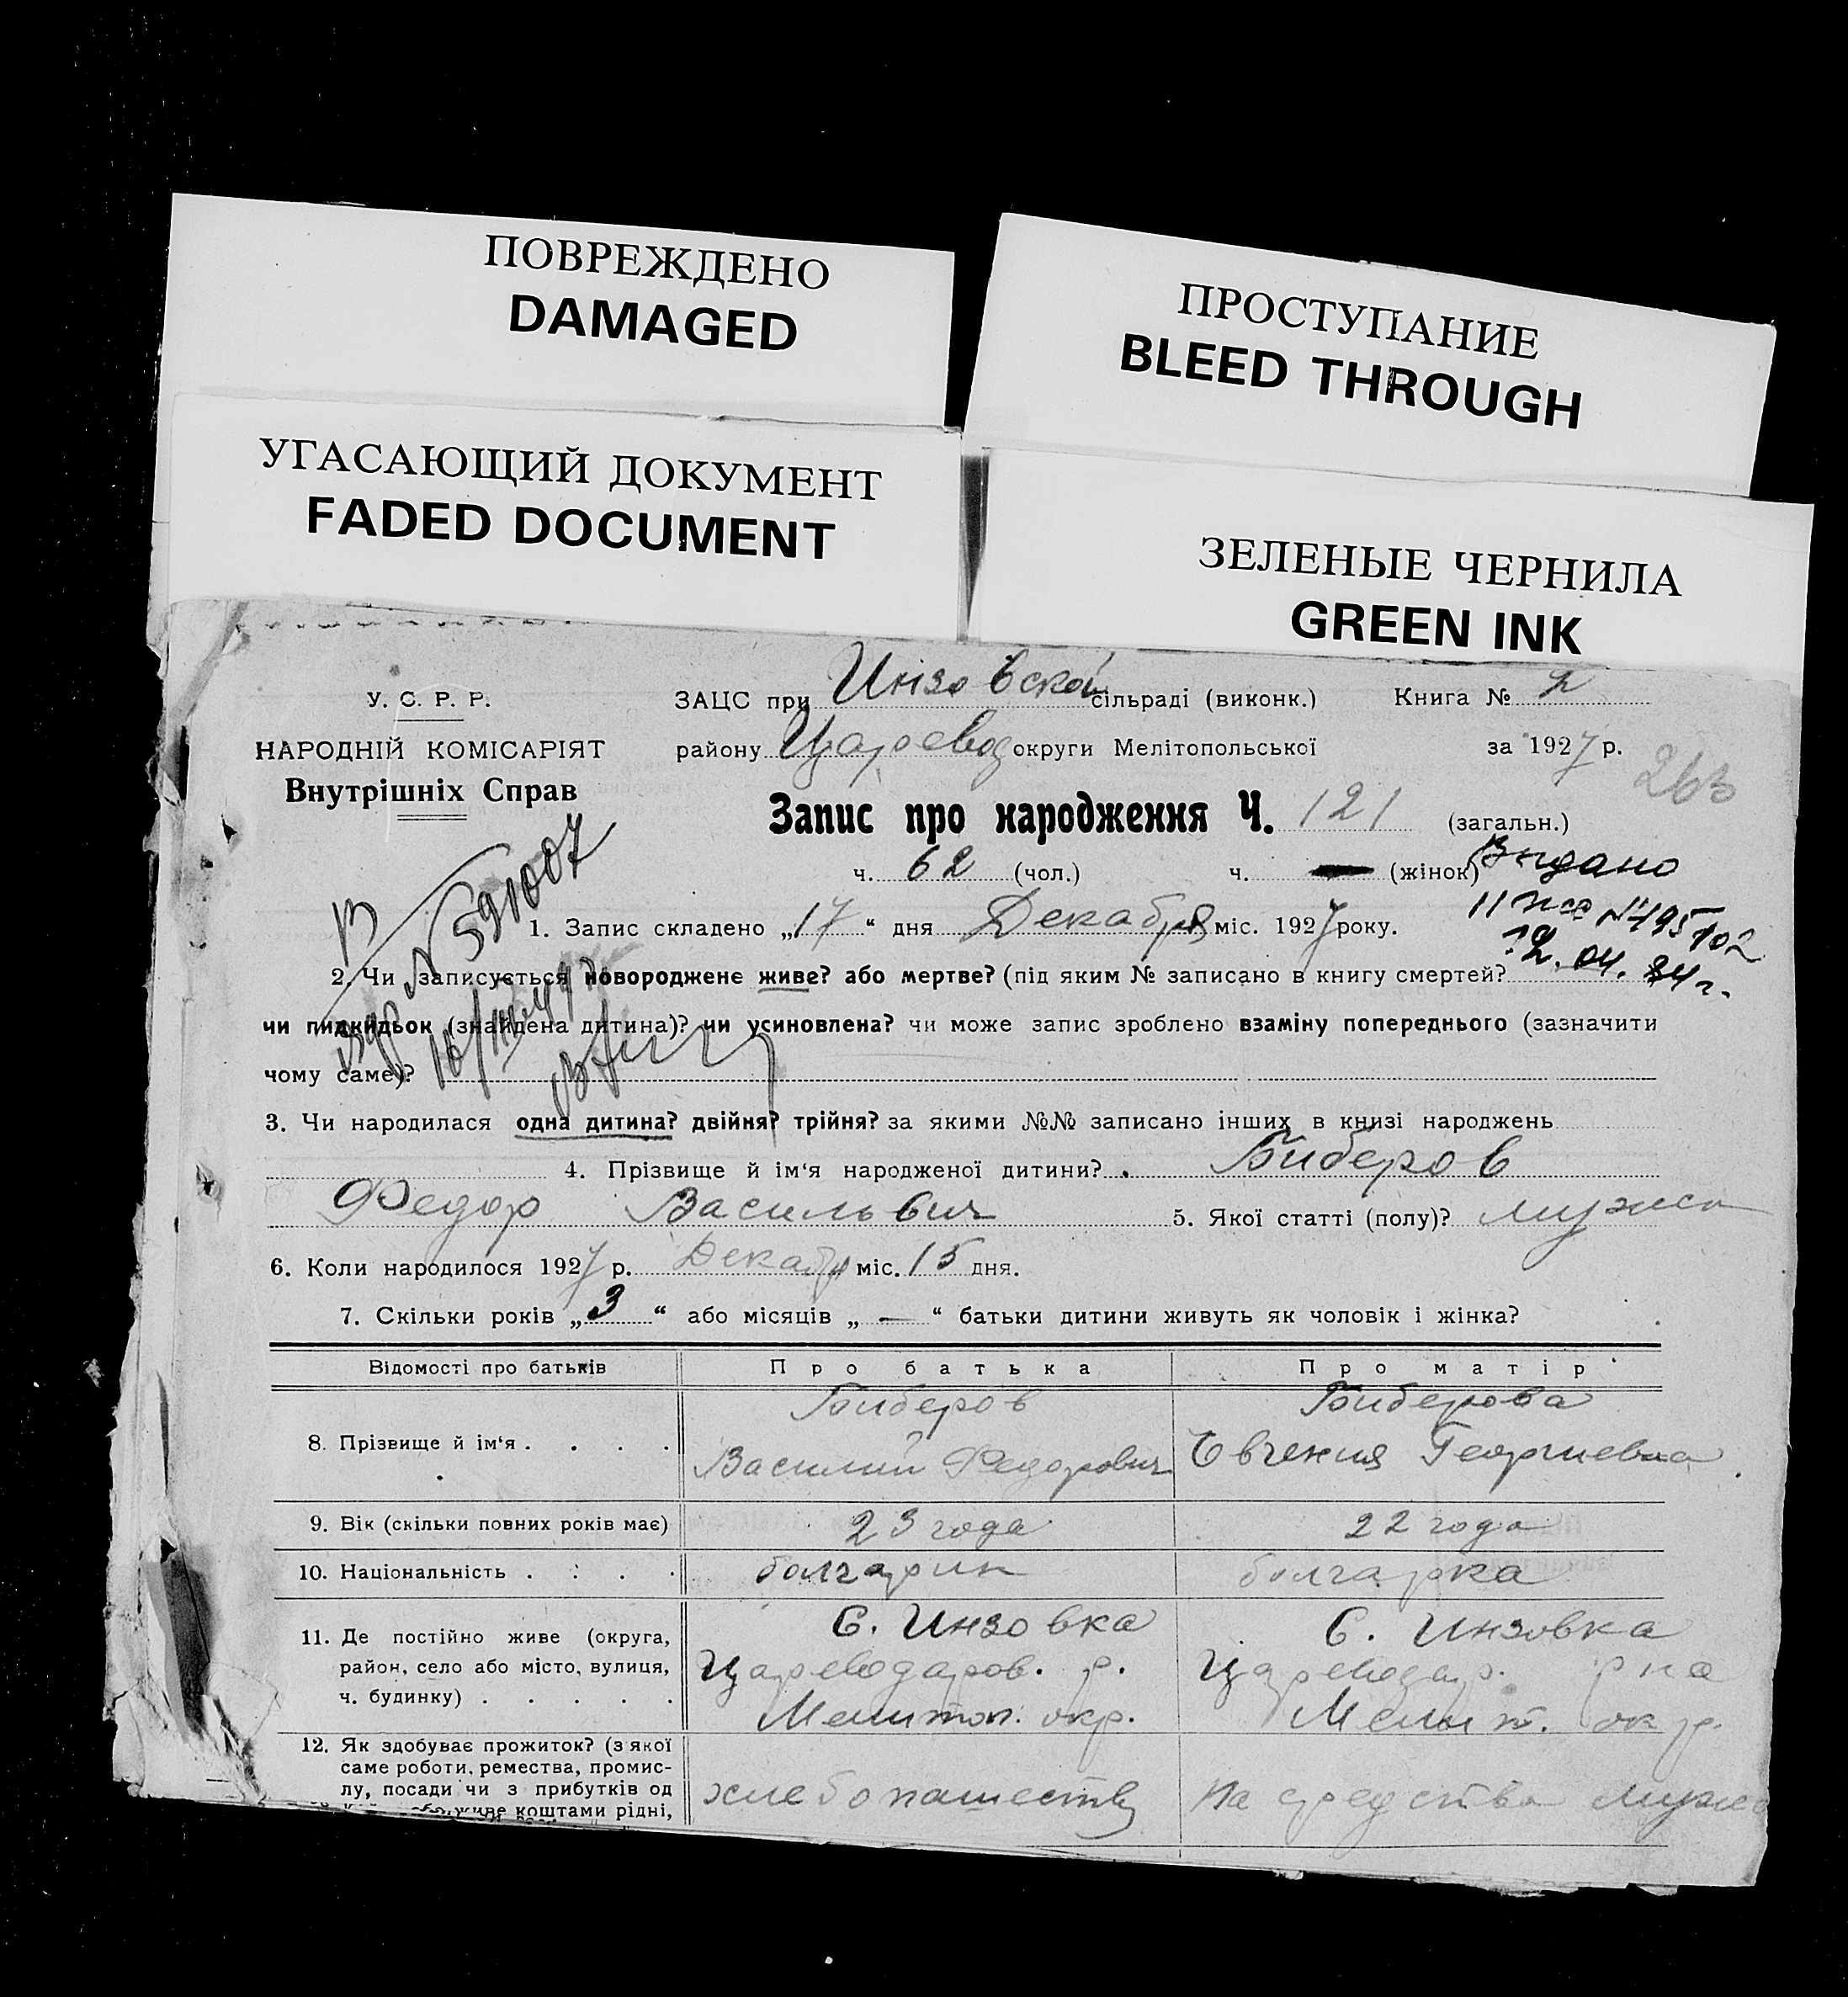 ПОВРЕЖДЕНО
DAMAGED
ПРОСТУПАНИЕ
BLEED THROUGH
УГАСАЮЩИЙ ДОКУМЕНТ
FADED DOCUMENT
ЗЕЛЕНЫЕ ЧЕРНИЛА
GREEN INK
У. С. Р. Р.
НАРОДНІЙ КОМІСАРІЯТ
Внутрішніх Справ
ЗАЦС при Инзовской сільраді (виконк.) Книга № 2
району Царевод округи Мелітопольської за 1927 р.
263
Запис про народження Ч. 121 (загальн.)
ч. 62 (чол.) ч. (жінок)
Выдано
№ 495102
12. 04. 84 г.
№ 591007
1. Запис складено „17“ дня Декабря міс. 1927 року.
2. Чи записується новороджене живе? або мертве? (під яким № записано в книгу смертей?
чи підкидьок (знайдена дитина)? чи усиновлена? чи може запис зроблено взаміну попереднього (зазначити
чому саме)?
3. Чи народилася одна дитина? двійня? трійня? за якими №№ записано інших в книзі народжень
4. Прізвище й ім‘я народженої дитини? Биберов
Федор Васильович 5. Якої статті (полу)? мужск
6. Коли народилося 1927 р. Декабря міс. 15 дня.
7. Скільки років „3“ або місяців „—“ батьки дитини живуть як чоловік і жінка?
Відомості про батьків Про батька Про матір
8. Прізвище й ім‘я . . . .
Биберов
Василий Федорович
Биберова
Евгения Георгиевна
9. Вік (скільки повних років має) 23 года 22 года
10. Національність . . . . болгарин болгарка
11. Де постійно живе (округа,
район, село або місто, вулиця,
ч. будинку) . . . . .
С. Инзовка
Цареводаров. р.
Мелитоп. окр.
С. Инзовка
Цареводар. р на
Мелит. окр.
12. Як здобуває прожиток? (з якої
саме роботи, ремества, промис-
лу, посади чи з прибутків од
живе коштами рідні,
хлебопашеству
на средства мужа